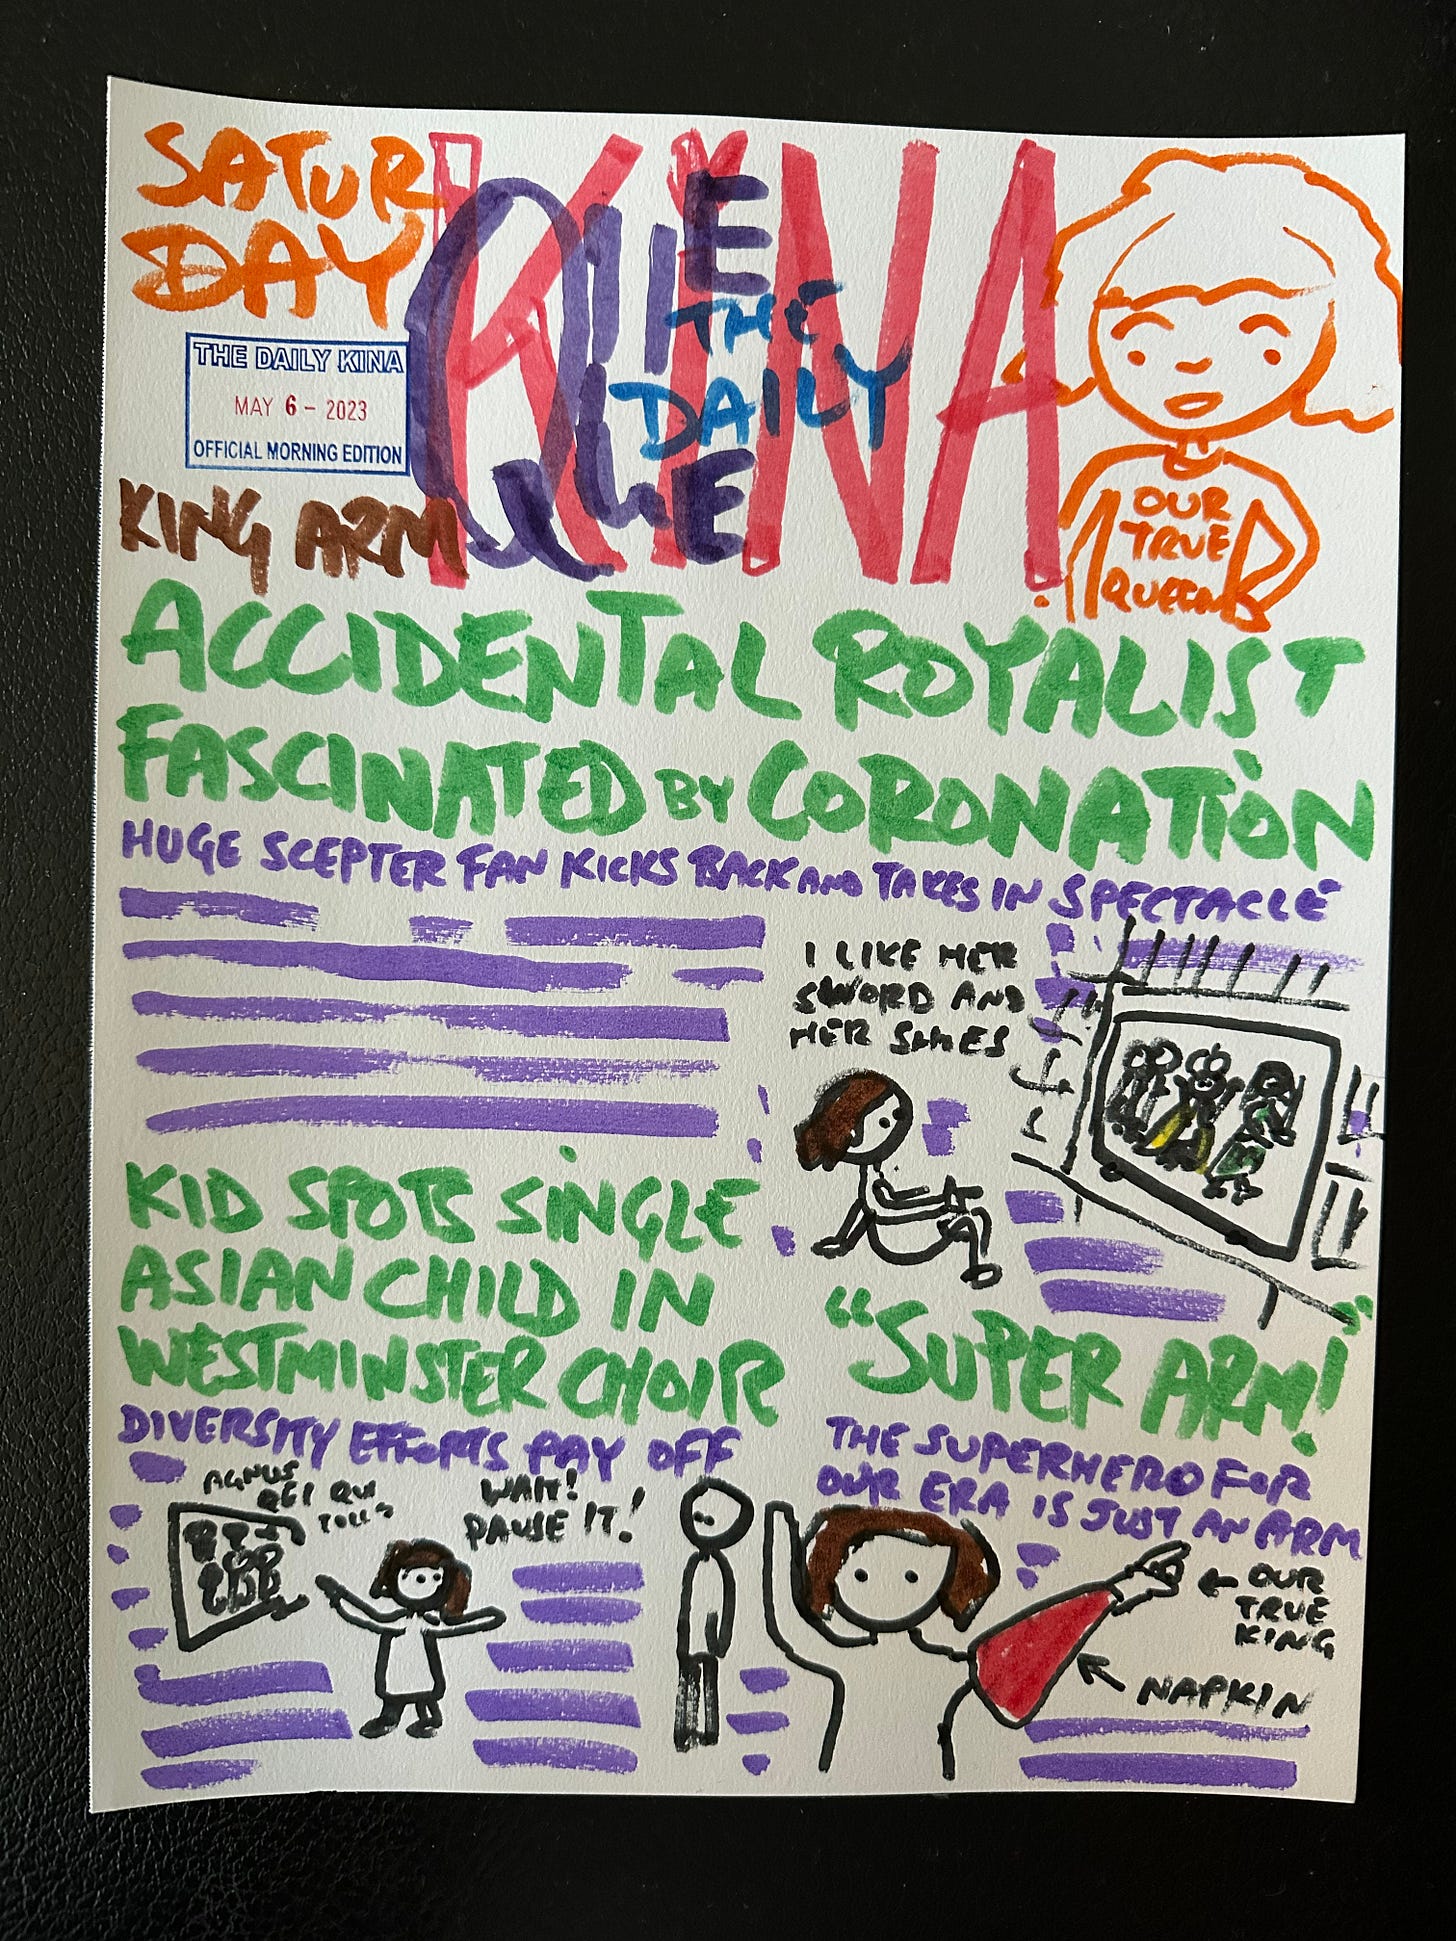 SATUR
DAY
THE DAILY KINA
MAY 6 - 2023
OFFICIAL MORNING EDITION
KINA
THE
DAILY
OUR
TRUE
QUEEN
KING ARM
ACCIDENTAL ROYALIST
FASCINATED BY CORONATION
HUGE SCEPTER FAN KICKS BACK AND TAKES IN SPECTACLE
I LIKE HER
SWORD AND
HER SHOES
KID SPOTS SINGLE
ASIAN CHILD IN
WESTMINSTER CHOIR
DIVERSITY EFFORTS PAY OFF
AGNUS
DEI QUI
TOLLIS
WAIT!
PAUSE IT!
"SUPER ARM!"
THE SUPERHERO FOR
OUR ERA IS JUST AN ARM
← OUR
TRUE
KING
NAPKIN